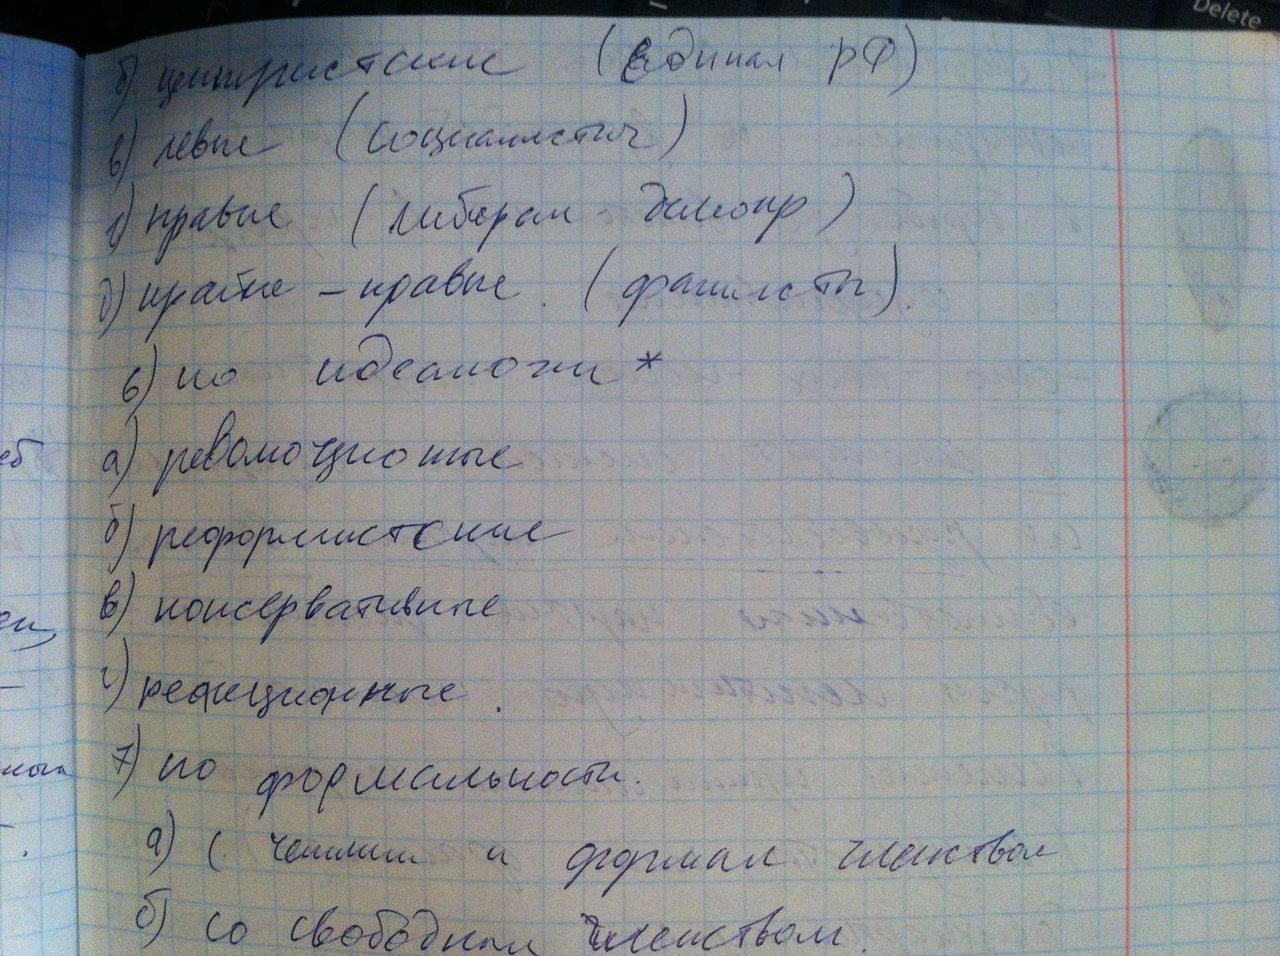 Delete
б) центристские (единая РФ)
в) левые (социалистич)
г) правые (либерал - демокр)
д) крайне - правые. (фашисты).
6) по идеалогии *
а) революционые
б) реформистские
в) консервативные
г) реакционные.
7) по формальности.
а) с четким и формал членством
б) со свободным членством.
еб
ей,
ным